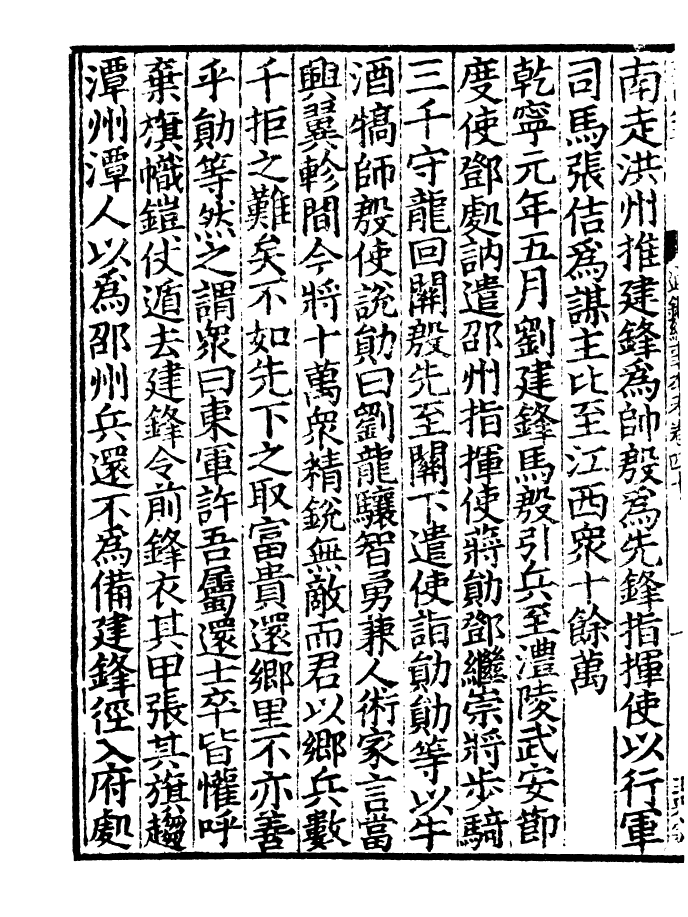 南走洪州推建鋒爲帥殷爲先鋒指揮使以行軍
司馬張佶爲謀主比至江西衆十餘萬
乾寧元年五月劉建鋒馬殷引兵至澧陵武安節
度使鄧處訥遣邵州指揮使蔣勛鄧繼崇將步騎
三千守龍回關殷先至關下遣使詣勛勛等以牛
酒犒師殷使說勛曰劉龍驤智勇兼人術家言當
興翼軫間今將十萬衆精銳無敵而君以鄉兵數
千拒之難矣不如先下之取富貴還鄉里不亦善
乎勛等然之謂衆曰東軍許吾屬還士卒皆懽呼
棄旗幟鎧仗遁去建鋒令前鋒衣其甲張其旗趨
潭州潭人以爲邵州兵還不爲備建鋒徑入府處